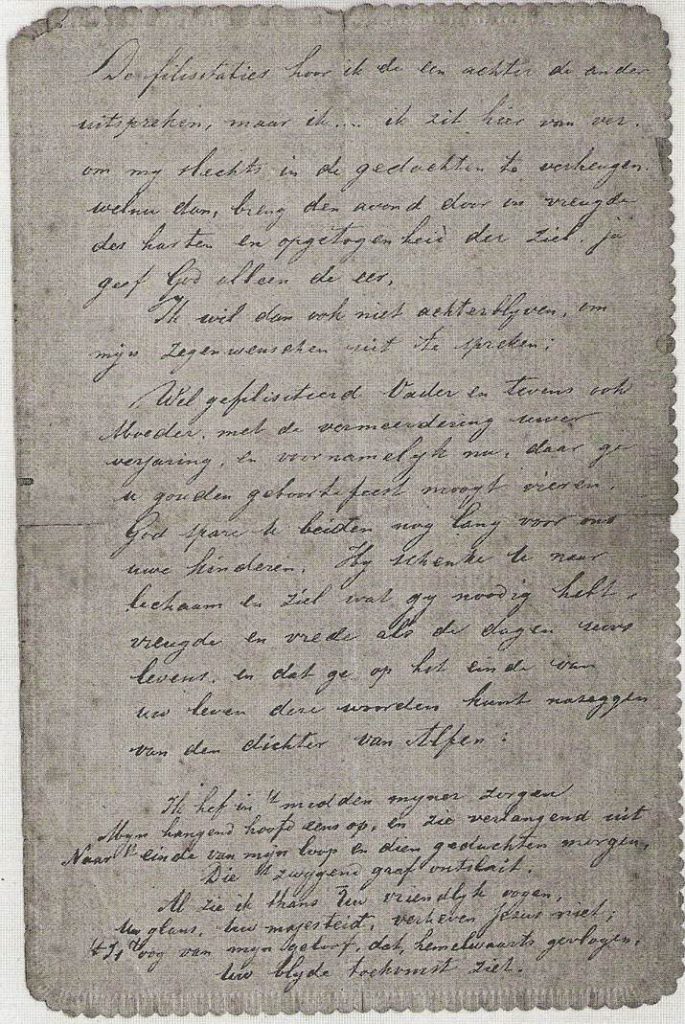 De filisitaties hoor ik de een achter de ander
uitspreken, maar ik.... ik zit hier van ver.
om my slechts in de gedachten te verheugen.
welnu dan, breng den avond door in vreugde
des harten en opgetogenheid der ziel. ja
geef God alleen de eer.
Ik wil dan ook niet achterblyven, om
mijn zegenwenschen uit te spreken:
Wel gefilisiteerd Vader en tevens ook
Moeder. met de vermeerdering uwer
verjaring, en voornamelyk nu, daar ge
u gouden geboortefeest moogt vieren.
God spare U beiden nog lang voor ons
uwe kinderen. Hy schenke U naar
lechaam en ziel wat gy noodig hebt,
vreugde en vrede als de dagen uws
levens. en dat ge op het einde van
uw leven deze woorden kunt nazeggen
van den dichter van Alfen:
Ik hef in 't midden myner zorgen
Myn hangend hoofd eens op, en zie verlangend uit
Naar 't einde van mijn loop en dien geduchten morgen,
Die 't zwygend graf ontsluit.
Al zie ik thans Uw vriendlyk oogen,
Uw glans, Uw majesteid, verheven Jesus niet;
't Is 't oog van myn geloof, dat, hemelwaarts gevlogen,
Uw blyde toekomst ziet.